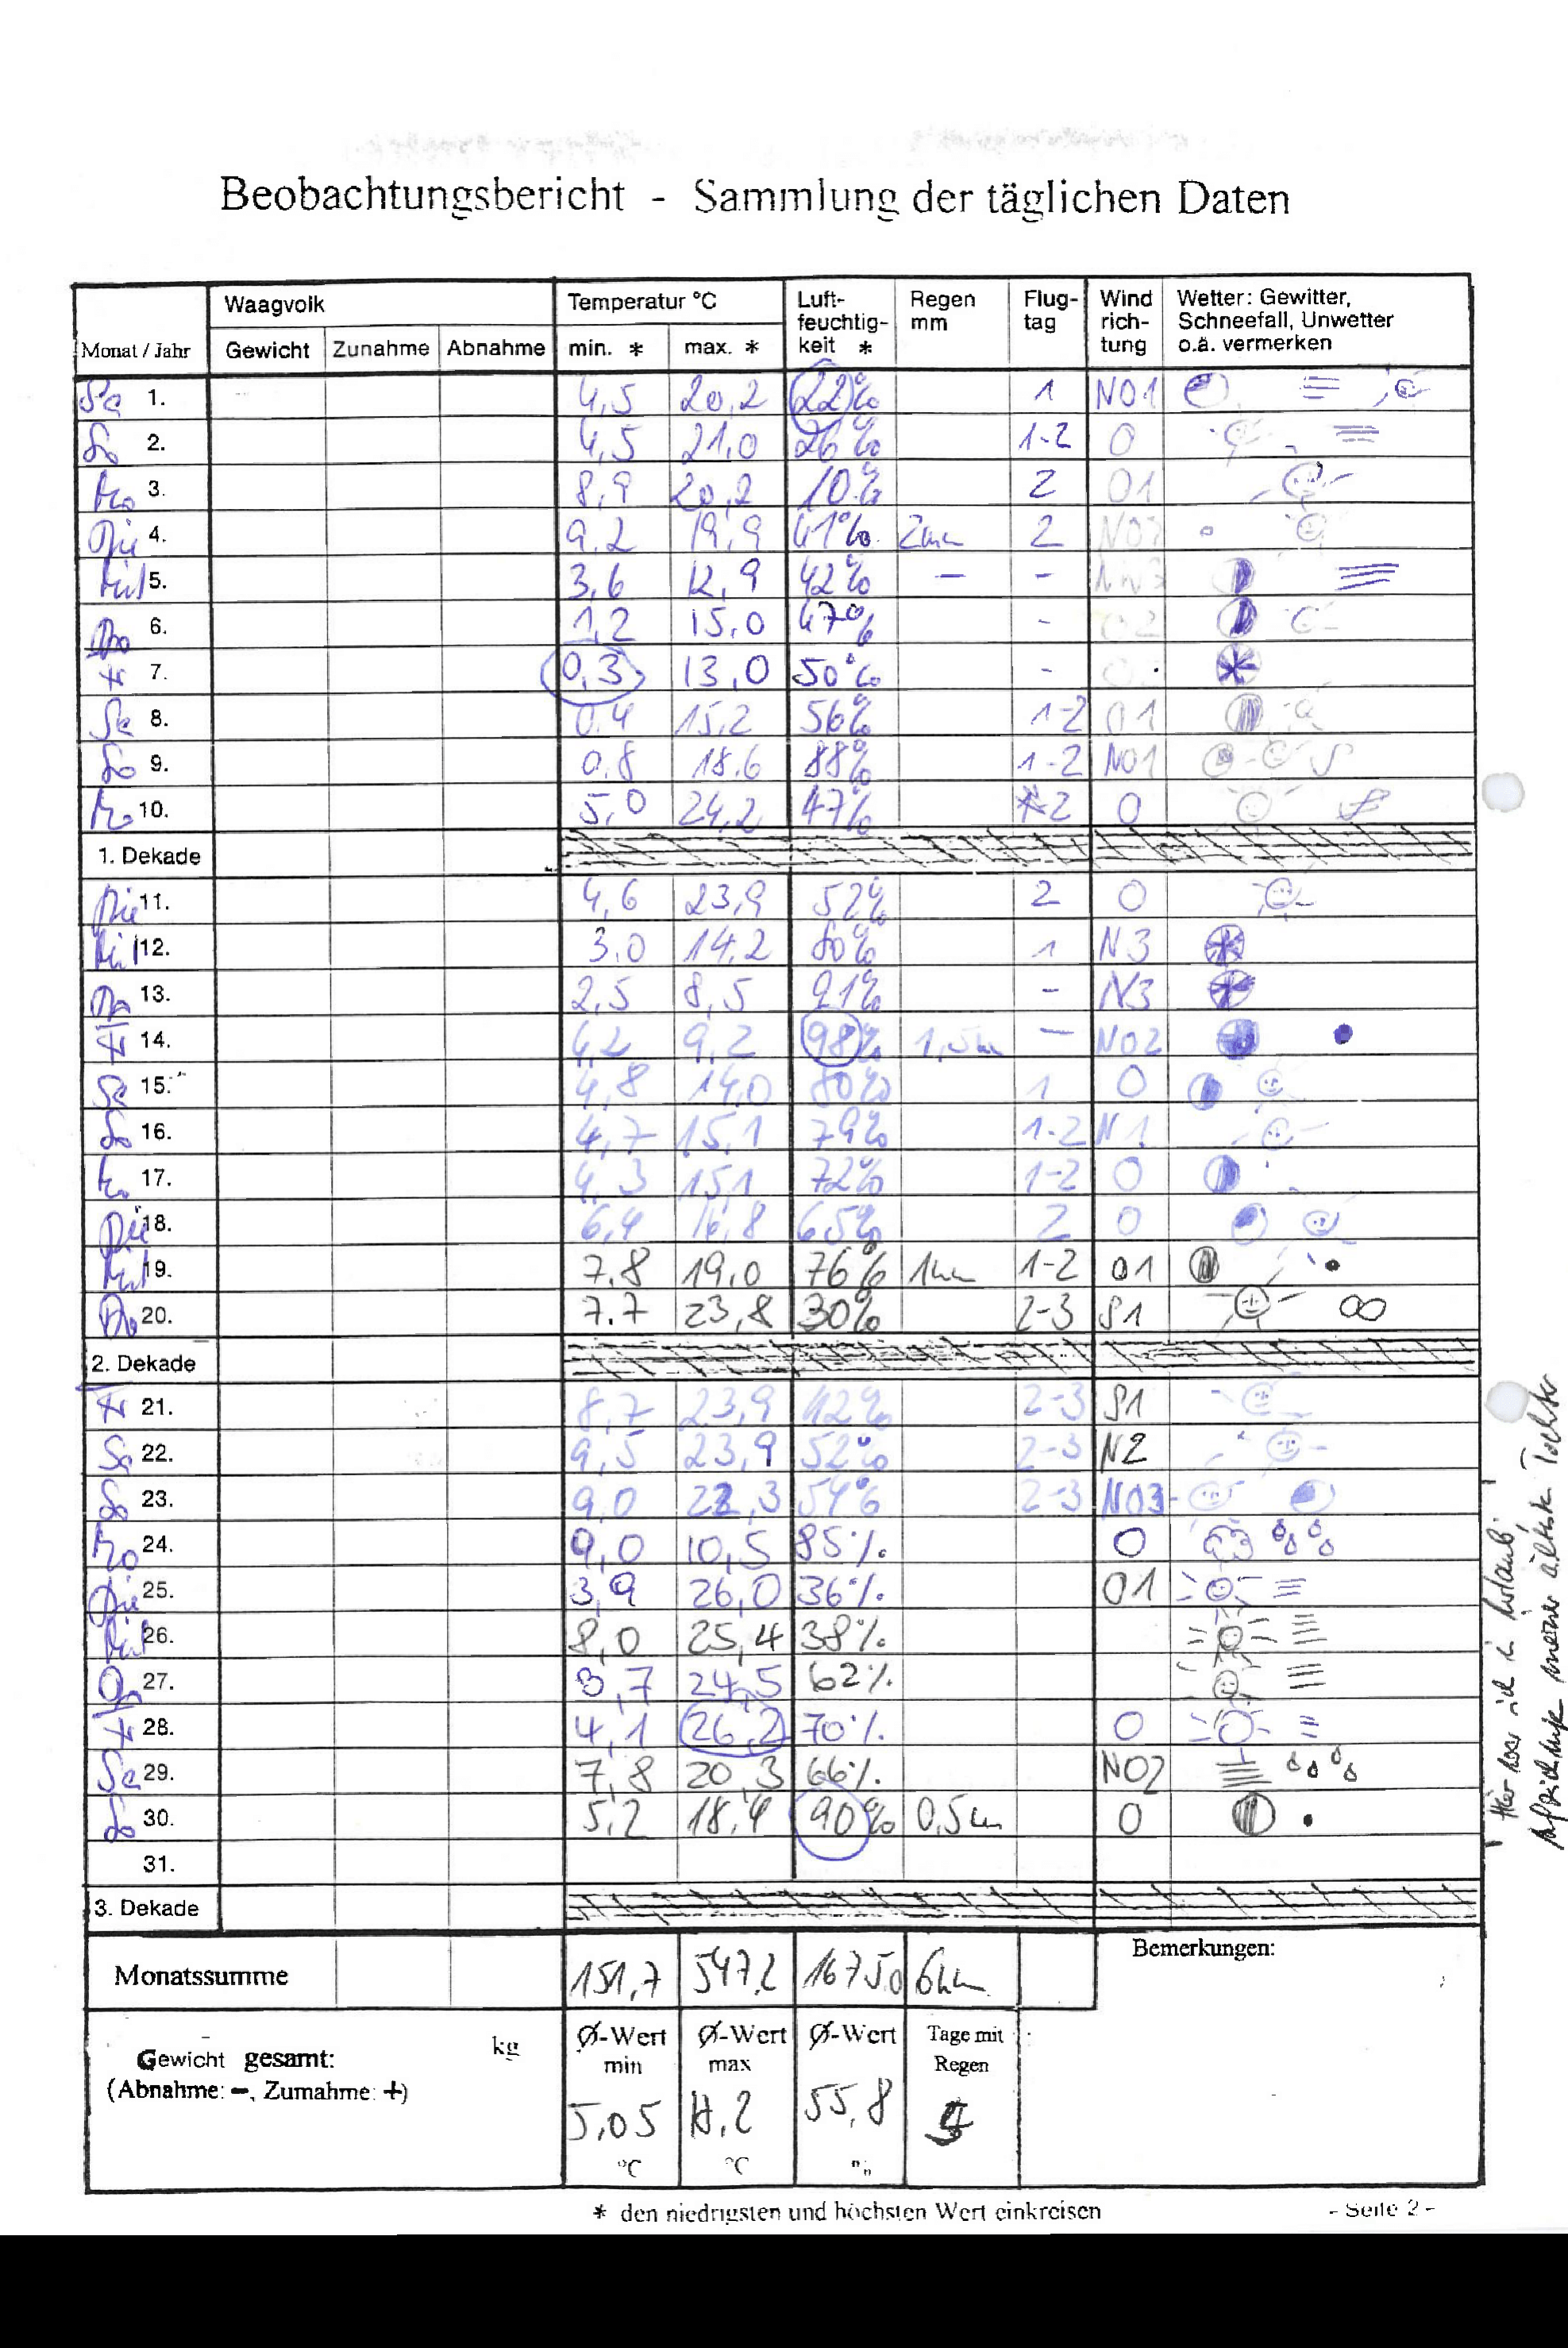 Beobachtungsbericht - Sammlung der täglichen Daten
Monat / Jahr
Waagvolk
Gewicht Zunahme Abnahme
Temperatur °C
min. * max. *
Luft-
feuchtig-
keit *
Regen
mm
Flug-
tag
Wind
rich-
tung
Wetter: Gewitter,
Schneefall, Unwetter
o.ä. vermerken
Sa 1. 4,5 20,2 22% 1 NO1
So 2. 4,5 21,0 26% 1-2 O
Mo 3. 8,9 20,2 10% 2 O1
Die 4. 9,2 19,9 41% 2mm 2 NO2
Mit 5. 3,6 12,9 42% - -
Do 6. 1,2 15,0 47% -
Fr 7. 0,3 13,0 50% -
Sa 8. 0,4 15,2 56% 1-2 O1
So 9. 0,8 18,6 88% 1-2 NO1
Mo 10. 5,0 24,2 47% 2 O
1. Dekade
Die 11. 4,6 23,9 52% 2 O
Mit 12. 3,0 14,2 80% 1 N3
Do 13. 2,5 8,5 91% - N3
Fr 14. 4,2 9,2 98% 1,5mm - NO2
Sa 15. 4,8 14,0 80% 1 O
So 16. 4,7 15,1 79% 1-2 N1
Mo 17. 4,3 15,1 72% 1-2 O
Die 18. 6,4 16,8 65% 2 O
Mit 19. 7,8 19,0 76% 1mm 1-2 O1
Do 20. 7,7 23,8 30% 2-3 S1
2. Dekade
Fr 21. 8,7 23,9 42% 2-3 S1
Sa 22. 9,5 23,9 52% 2-3 N2
So 23. 9,0 22,3 54% 2-3 NO3
Mo 24. 9,0 10,5 85% O
Die 25. 3,9 26,0 36% O1
Mit 26. 8,0 25,4 38%
Do 27. 3,7 24,5 62%
Fr 28. 4,1 26,2 70% O
Sa 29. 7,8 20,3 66% NO2
So 30. 5,2 18,4 90% 0,5mm O
31.
3. Dekade
Monatssumme 151,7 547,2 1675,0 6mm
Bemerkungen:
Gewicht gesamt: kg
(Abnahme: -, Zumahme: +)
Ø-Wert
min
5,05
°C
Ø-Wert
max
18,2
°C
Ø-Wert
55,8
%
Tage mit
Regen
* den niedrigsten und höchsten Wert einkreisen
- Seite 2 -
Hier war ich in Urlaub
meiner ältest. Tochter